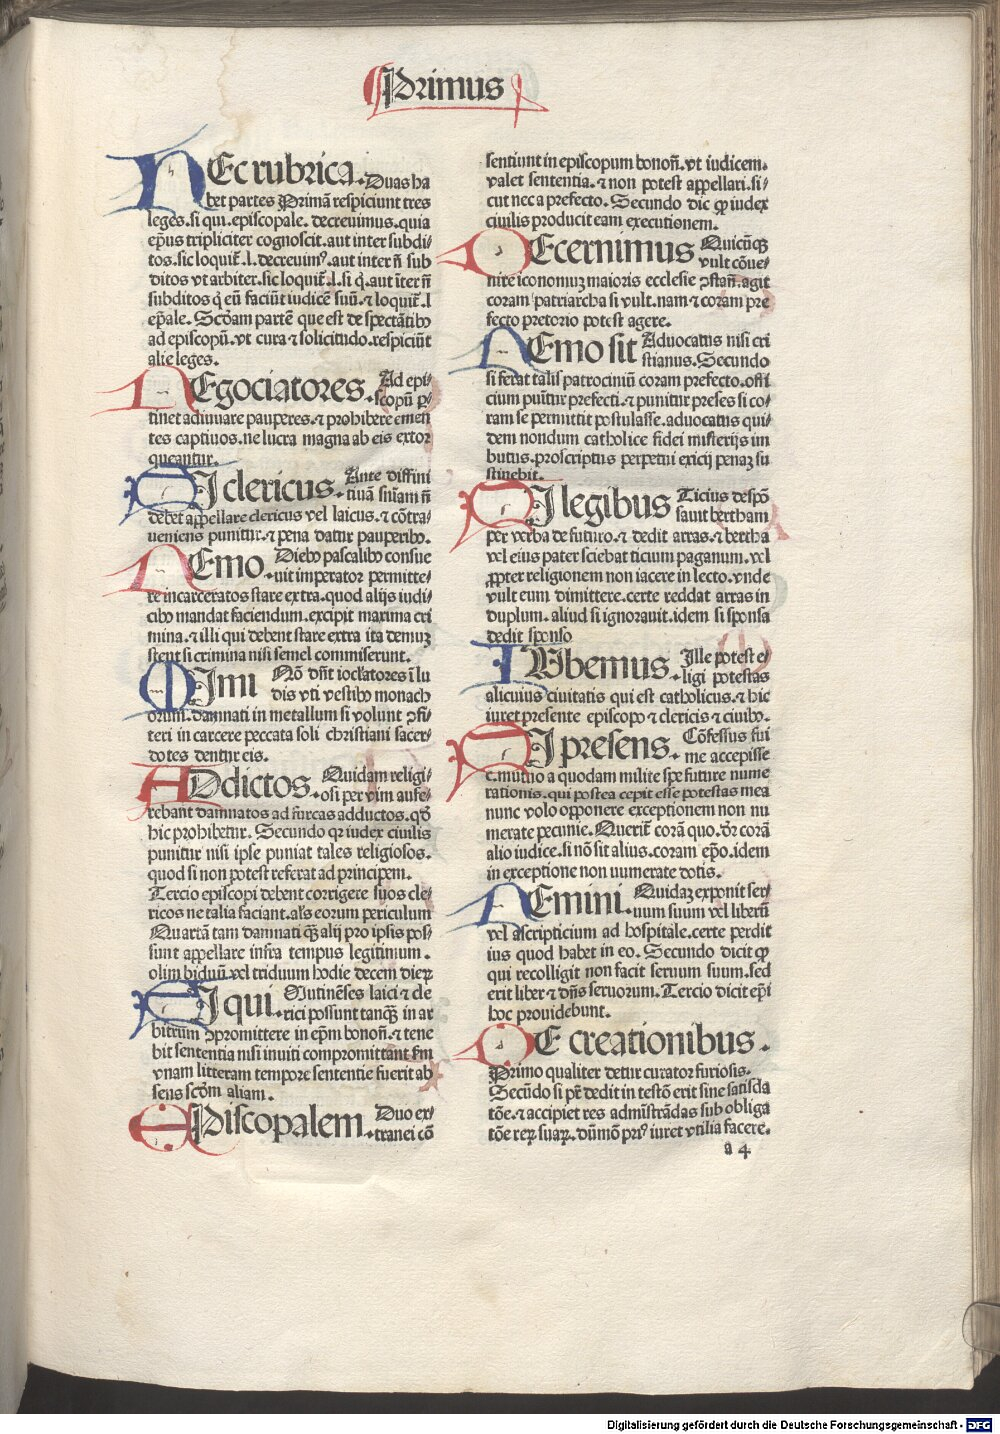 Primus
HEc rubrica. Duas ha
bet partes Primā respiciunt tres
leges. si qui. episcopale. decreuimus. quia
ep̄us tripliciter cognoscit. aut inter subdi⸗
tos. sic loquit̄. l. decreuimꝰ. aut inter n̄ sub
ditos vt arbiter. sic loquit̄. l. si q̇. aut īter n̄
subditos q̇ eū faciūt iudicē suū. ⁊ loquit̄. l
ep̄ale. Scd̄am partē que est de spectātibꝰ
ad episcopū. vt cura ⁊ solicitudo. respiciūt
alie leges.
NEgociatores. Ad epi⸗
scopū ꝑ⸗
tinet adiuuare pauperes. ⁊ prohibere emen
tes captiuos. ne lucra magna ab eis extor
queantur.
SI clericus. Ante diffini
tiuā sn̄iam n̄
debet appellare clericus vel laicus. ⁊ cōtra⸗
ueniens punitur. ⁊ pena datur pauperibꝰ.
NEmo. Diebꝰ pascalibꝰ consue
uit imperator permitte⸗
re incarceratos stare extra. quod alijs iudi⸗
cibꝰ mandat faciendum. excipit maxima cri
mina. ⁊ illi qui debent stare extra ita demuꝫ
stent si crimina nisi semel commiserunt.
MImi Nō dn̄t ioclatores ī lu
dis vti vestibꝰ monach
orum. damnati in metallum si volunt ꝯfi⸗
teri in carcere peccata soli christiani sacer⸗
dotes dentur eis.
ADdictos. Quidam religi⸗
osi per vim aufe⸗
rebant damnatos ad furcas adductos. qd̄
hic prohibetur. Secundo qꝛ iudex ciuilis
punitur nisi ipse puniat tales religiosos.
quod si non potest referat ad principem.
Tercio episcopi debent corrigere suos cle⸗
ricos ne talia faciant. als eorum periculum
Quartā tam damnati qꝫ alij pro ipsis pos⸗
sunt appellare infra tempus legitimum.
olim biduū vel triduum hodie decem dieꝝ
SI qui. Mutinēses laici ⁊ cle
rici possunt tanqꝫ in ar
bitrum ꝯpromittere in ep̄m bonon̄. ⁊ tene
bit sententia nisi inuiti compromittant fm
vnam litteram tempore sententie fuerit ab
sens scd̄m aliam.
EPiscopalem. Duo ex⸗
tranei cō
sentiunt in episcopum bonon̄. vt iudicem.
valet sententia. ⁊ non potest appellari. si⸗
cut nec a prefecto. Secundo dic ꝙ iudex
ciuilis producit eam executionem.
DEcernimus Quicūqꝫ
vult cōue⸗
nire iconomuꝫ maioris ecclesie ꝯstan̄. agit
coram patriarcha si vult. nam ⁊ coram pre
fecto pretorio potest agere.
NEmo sit Aduocatus nisi cri
stianus. Secundo
si ferat talis patrociniū coram prefecto. offi
cium puītur prefecti. ⁊ punitur preses si co⸗
ram se permittit postulasse. aduocatus qui⸗
dem nondum catholice fidei misterijs im
butus. proscriptus perpetui exicij penaꝫ su
stinebit.
SI legibus Ticius despō
sauit bertham
per verba de futuro. ⁊ dedit arras. ⁊ bertha
vel eius pater sciebat ticium paganum. vel
ꝓpter religionem non iacere in lecto. vnde
vult eum dimittere. certe reddat arras in
duplum. aliud si ignorauit. idem si sponsa
dedit sponso
IUbemus. Ille potest e⸗
ligi potestas
alicuius ciuitatis qui est catholicus. ⁊ hic
iuret presente episcopo ⁊ clericis ⁊ ciuibꝰ.
SI presens. Cōfessus fui
me accepisse
c. mutuo a quodam milite spe future nume
rationis. qui postea cepit esse potestas mea
nunc volo opponere exceptionem non nu
merate pecunie. Querit̄ corā quo. dr̄ corā
alio iudice. si nō sit alius. coram ep̄o. idem
in exceptione non uumerate dotis.
LEmini. Quidaꝫ exponit ser⸗
uum suum vel liberū
vel ascripticium ad hospitale. certe perdit
ius quod habet in eo. Secundo dicit ꝙ
qui recolligit non facit seruum suum. sed
erit liber ⁊ dn̄s seruorum. Tercio dicit ep̄i
hoc prouidebunt.
DE creationibus.
Primo qualiter detur curator furiosis.
Secūdo si pr̄ dedit in testō erit sine satisda
tōe. ⁊ accipiet res admīstrādas sub obliga
tōe reꝝ suaꝝ. dūmō priꝰ iuret vtilia facere.
a 4
Digitalisierung gefördert durch die Deutsche Forschungsgemeinschaft - DFG